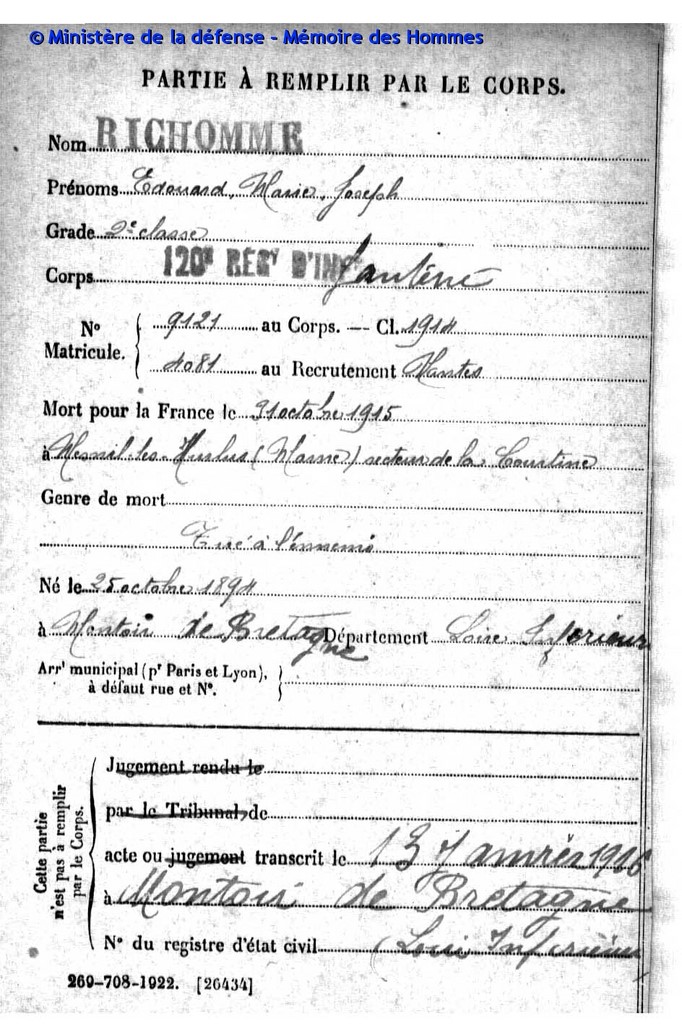 © Ministère de la défense - Mémoire des Hommes
PARTIE À REMPLIR PAR LE CORPS.
Nom RICHOMME
Prénoms Edouard, Marie, Joseph
Grade 2e classe
Corps 120e RÉGt D'INFanterie
No Matricule. 9121 au Corps. — Cl. 1914
4081 au Recrutement Nantes
Mort pour la France le 31 octobre 1915
à Mesnil-les-Hurlus (Marne) secteur de la Courtine
Genre de mort
Tué à l'ennemi
Né le 25 octobre 1894
à Montoir de Bretagne Département Loire Inférieure
Arrt municipal (pr Paris et Lyon),
à défaut rue et No.
Cette partie n'est pas à remplir par le Corps.
Jugement rendu le
par le Tribunal de
acte ou jugement transcrit le 13 1916
à Montoir de Bretagne
No du registre d'état civil (Loire Inférieure
269-708-1922. [26434]